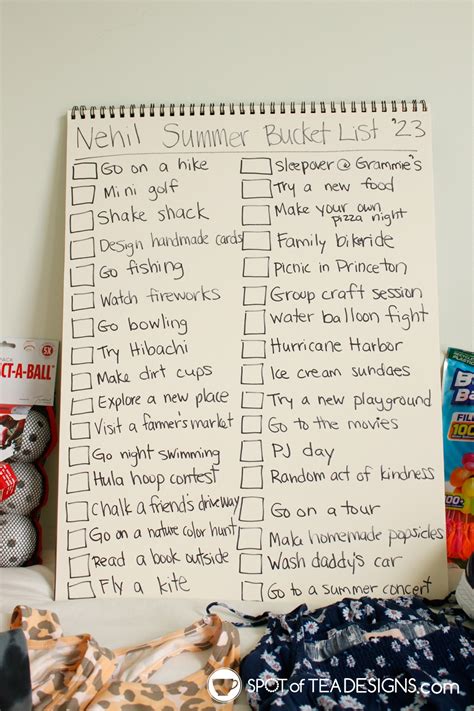 Nehil Summer Bucket List '23
Go on a hike
Mini golf
Shake shack
Design handmade cards
Go fishing
Watch fireworks
Go bowling
Try Hibachi
Make dirt cups
Explore a new place
Visit a farmer's market
Go night swimming
Hula hoop contest
Chalk a friend's driveway
Go on a nature color hunt
Read a book outside
Fly a kite
Sleepover @ Grammie's
Try a new food
Make your own
pizza night
Family bikeride
Picnic in Princeton
Group craft session
Water balloon fight
Hurricane Harbor
Ice cream sundaes
Try a new playground
Go to the movies
PJ day
Random act of kindness
Go on a tour
Make homemade popsicles
Wash daddy's car
Go to a summer concert
5X
CT-A-BALL
B
Ba
FILL
100
SPOT of TEA DESIGNS.com